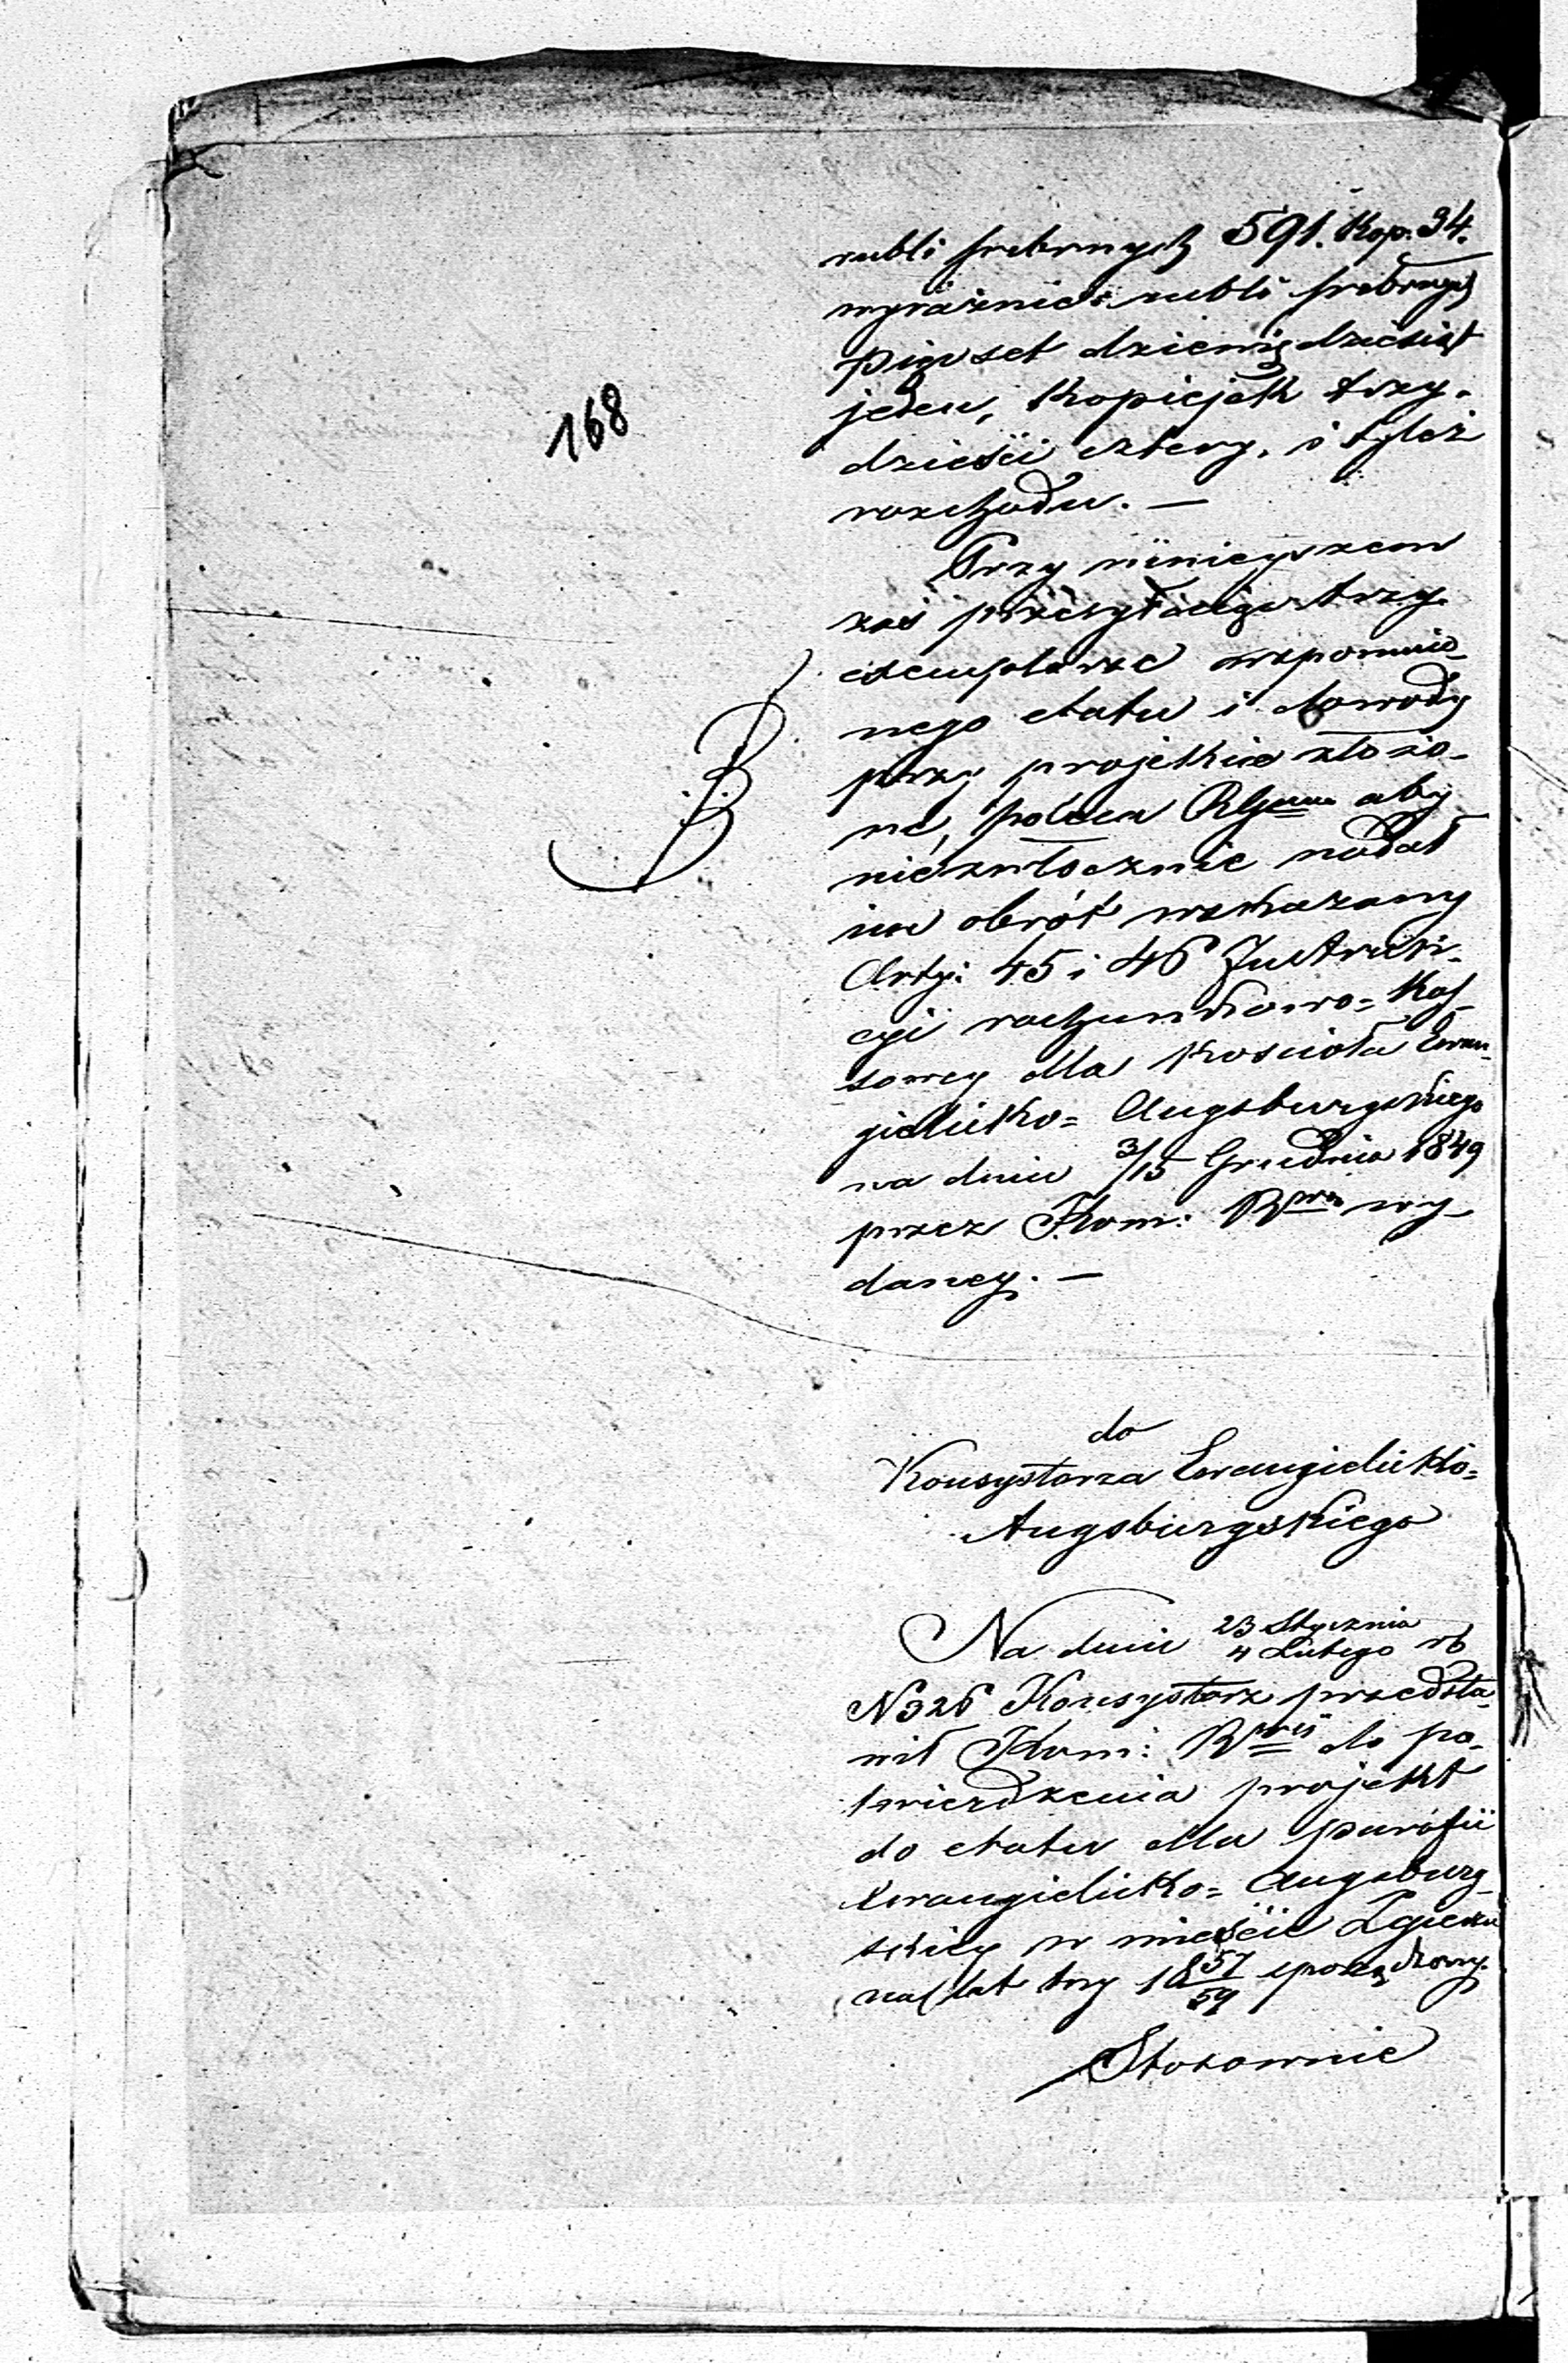 168
rubli srebrnych 591. Kop. 34.
wyraźnie: rubli srebrnych
pięćset dziewiędziesiąt
jeden, Kopiejek trzy-
dzieści cztery, i tyleż
rozchodu. —
Przy niniejszem
zaś przesyłając trzy
exemplarze wspomnio-
nego etatu i dowody
przy projekcie złożo-
ne, poleca RGmu aby
niezwłocznie nadał
im obrót wskazany
Arty: 45 i 46 Instruk-
cyi rachunkowo= Kas-
sowey dla Kościoła Ewan-
gielicko= Augsburgskiego
na dniu 3/15 Grudnia 1849
przez Kom: Rwą wy-
daney. —
do
Konsystorza Ewangielicko=
Augsburgskiego
Na dniu 23 Stycznia / 4 Lutego rb
N 326 Konsystorz przedsta-
wił Kom: Rwéj do po-
twierdzenia projekt
do etatu dla parafii
Ewangielicko= Augsburg-
skiey w mieście Zgierzu
na lat trzy 1857/59 sporządzony.
Stosownie